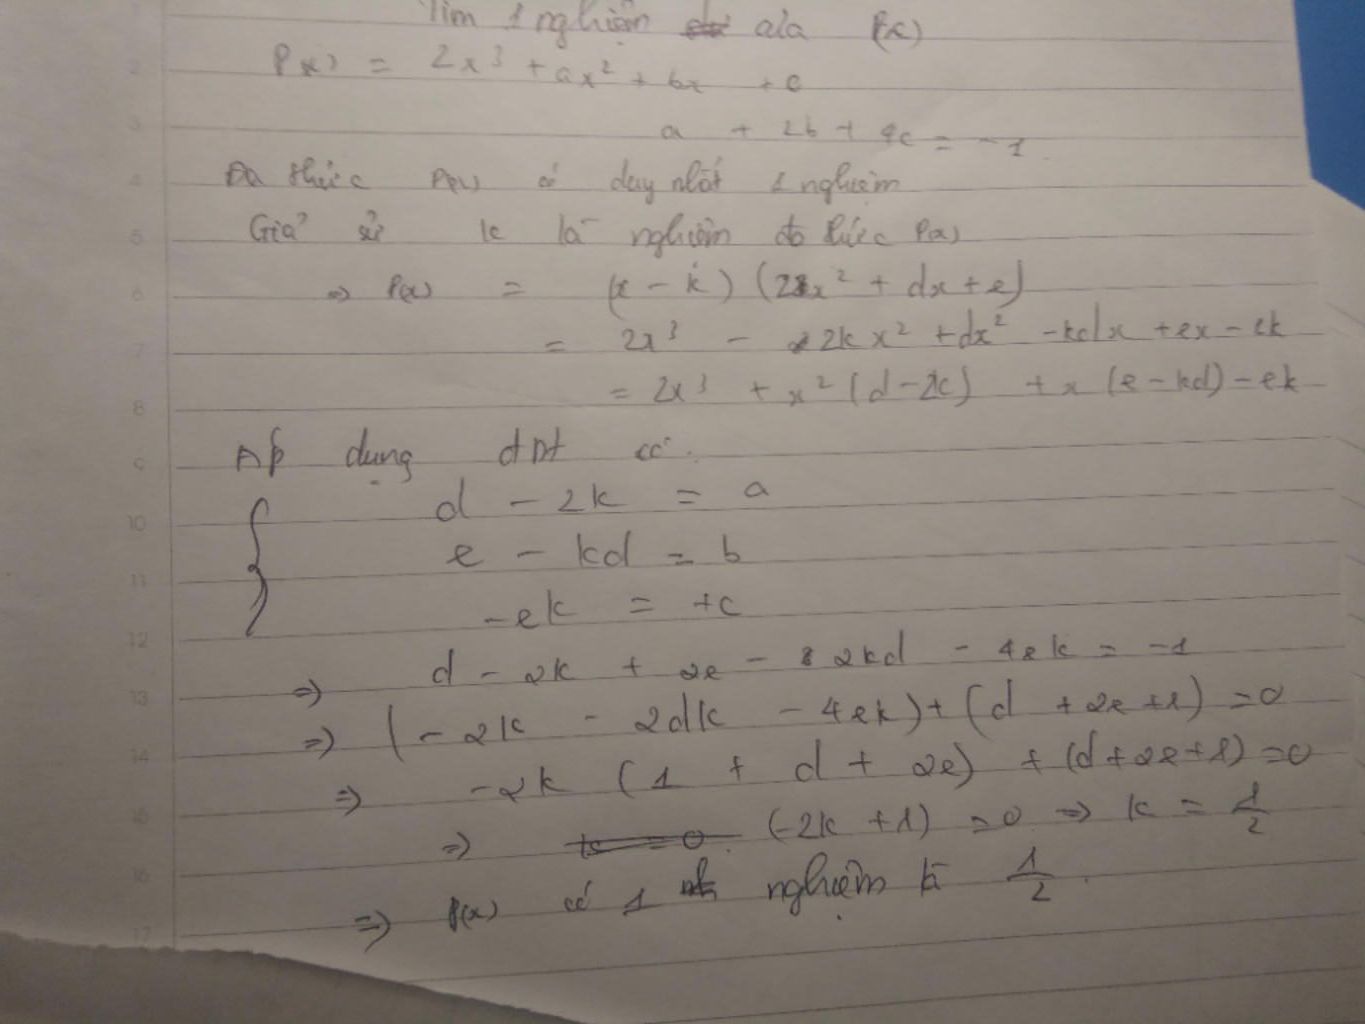 Tìm 1 nghiệm của P(x)
P(x) = 2x³ + ax² + bx + c
a + 2b + 4c = -1
Đa thức P(x) có duy nhất 1 nghiệm
Giả sử k là nghiệm đa thức P(x)
=> P(x) = (x - k) (2x² + dx + e)
= 2x³ - 2kx² + dx² - kdx + ex - ek
= 2x³ + x² (d - 2k) + x (e - kd) - ek
Áp dụng có.
d - 2k = a
e - kd = b
-ek = +c
=> d - 2k + 2e - 2kd - 4ek = -1
=> (-2k - 2dk - 4ek) + (d + 2e + 1) = 0
=> -2k (1 + d + 2e) + (d + 2e + 1) = 0
=> (-2k + 1) = 0 => k = 1/2
=> P(x) có 1 nghiệm là 1/2.